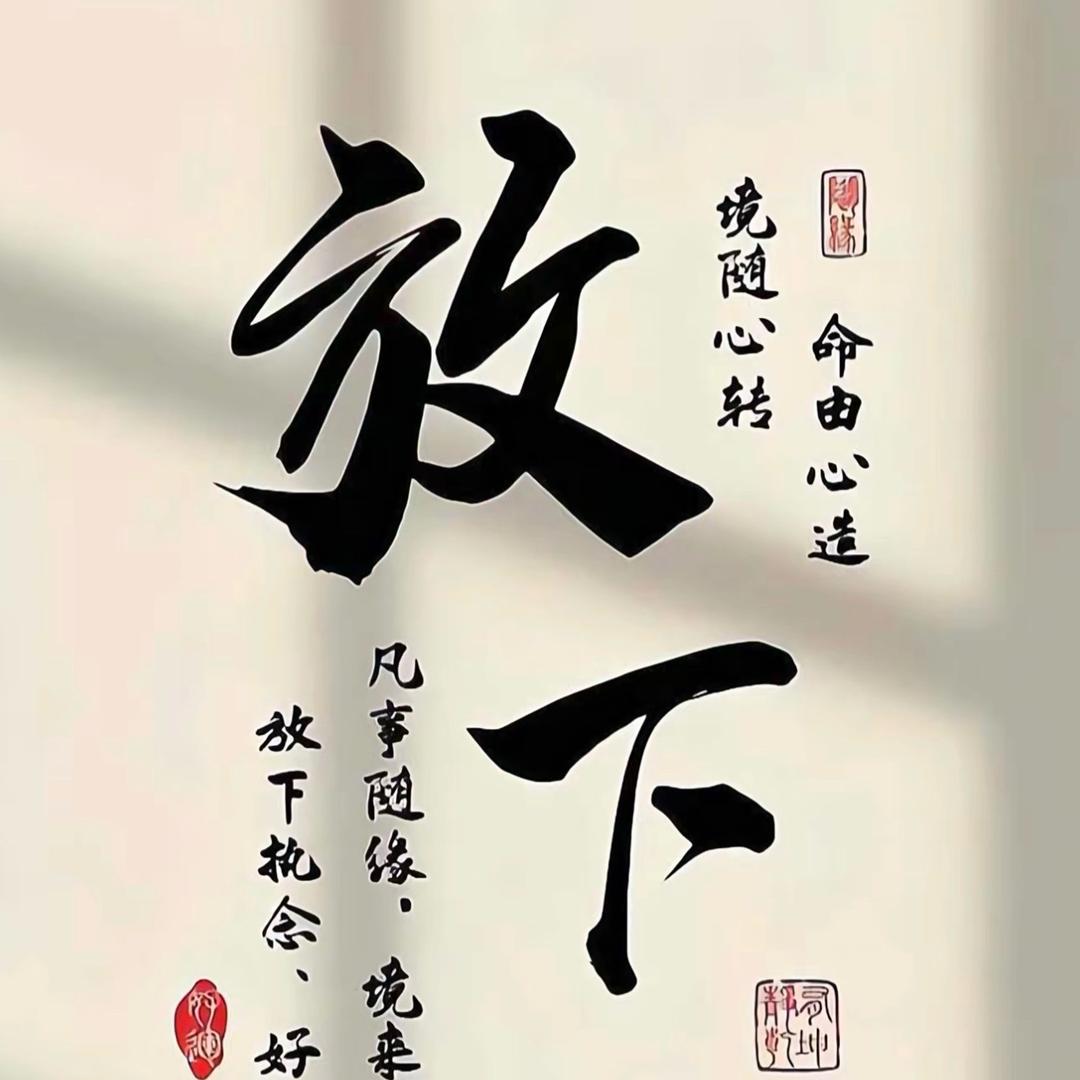 放下
命由心造
境随心转
凡事随缘，境来
放下执念、好
好运